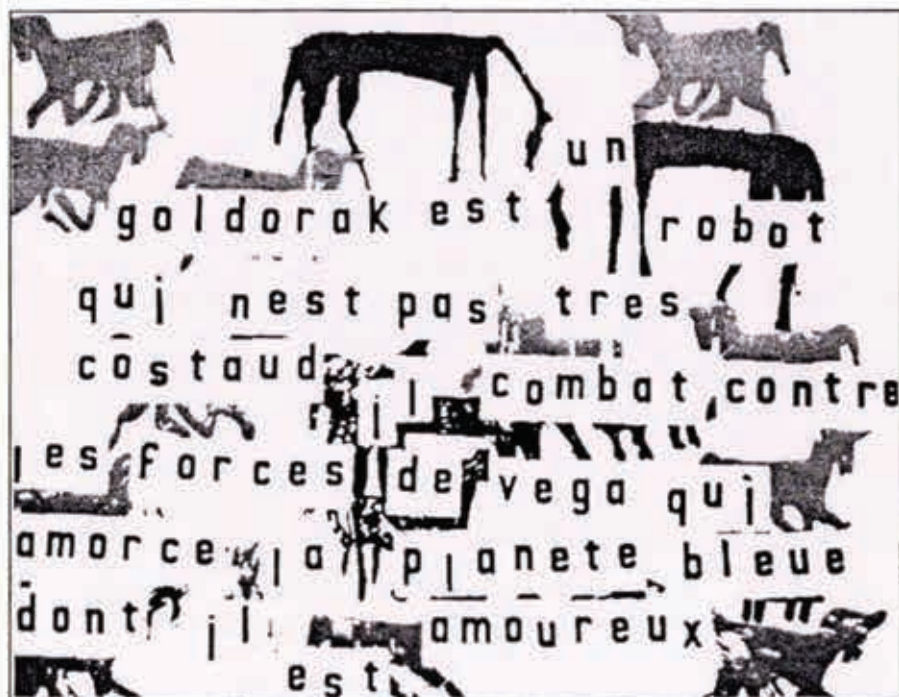 un
goldorak est robot
qui n'est pas tres
costaud il combat contre
les forces de vega qui
amorce la planete bleue
dont il amoureux
est